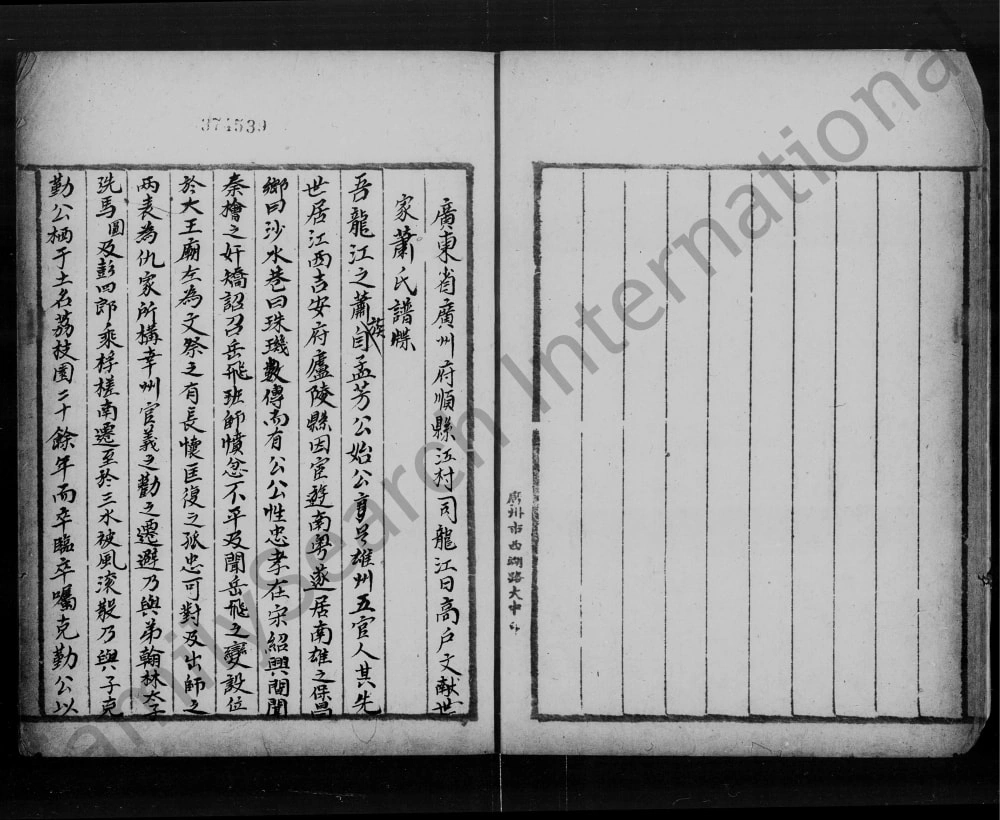 374539
廣東省廣州府順縣江村司龍江日高户文献世
家蕭氏譜牒
吾龍江之蕭族自孟芳公始公享号雄州五官人其先
世居江西吉安府廬陵縣因宦遊南粤遂居南雄之保昌
鄉曰沙水巷曰珠璣數傳而有公公性忠孝在宋紹興間聞
秦檜之奸矯詔召岳飛班師憤忿不平及聞岳飛之變設位
於大王廟左為文祭之有長懷匡復之孤忠可對及出師之
兩表為仇家所構幸州官義之勸之遷避乃與弟翰林太子
洗馬圖及彭四郎乘桴槎南遷至於三水被風滚散乃與子克
勤公栖于土名荔枝園二十餘年而卒臨卒囑克勤公以
廣州市西湖路大中
FamilySearch International